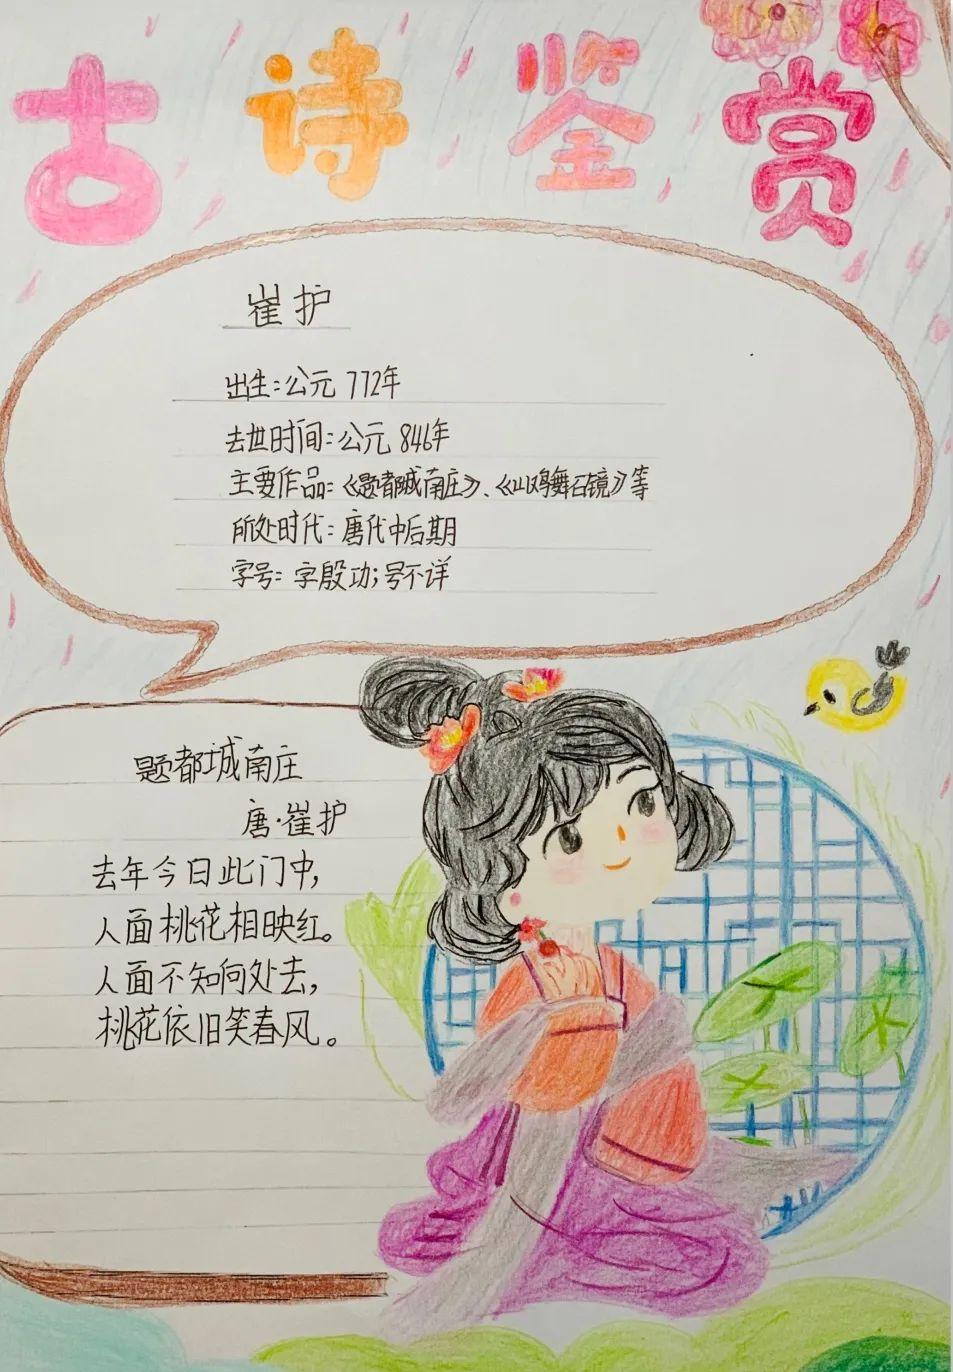 古诗鉴赏
崔护
出生:公元 772年
去世时间:公元 846年
主要作品:《题都城南庄》、《山鸡舞石镜》等
所处时代:唐代中后期
字号:字殷功;号不详
题都城南庄
唐·崔护
去年今日此门中,
人面桃花相映红。
人面不知何处去,
桃花依旧笑春风。